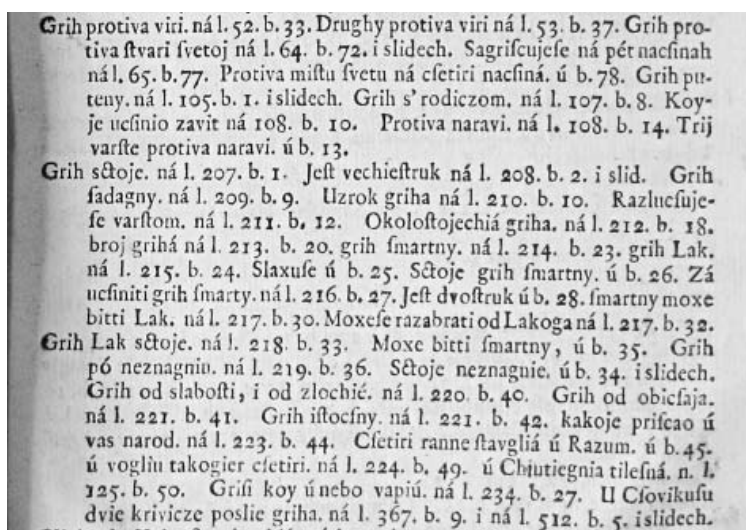 Grih protiva viri. ná l. 52. b. 33. Drughy protiva viri ná l. 53. b. 37. Grih pro-
tiva ſtvari ſvetoj ná l. 64. b. 72. i slidech. Sagriſcujeſe ná pét nacſinah
ná l. 65. b. 77. Protiva miſtu ſvetu ná cſetiri nacſiná. ú b. 78. Grih pu-
teny. ná l. 105. b. 1. i slidech. Grih s' rodiczom. ná l. 107. b. 8. Koy-
je ucſinio zavit ná 108. b. 10. Protiva naravi. ná l. 108. b. 14. Trij
varſte protiva naravi. ú b. 13.
Grih sctoje. ná l. 207. b. 1. Jeſt vechieſtruk ná l. 208. b. 2. i slid. Grih
ſadagny. ná l. 209. b. 9. Uzrok griha ná l. 210. b. 10. Razlucſuje-
ſe varſtom. ná l. 211. b. 12. Okoloſtojechiá griha. ná l. 212. b. 18.
broj grihá ná l. 213. b. 20. grih ſmartny. ná l. 214. b. 23. grih Lak.
ná l. 215. b. 24. Slaxuſe ú b. 25. Sctoje grih ſmartny. ú b. 26. Zá
ucſiniti grih ſmarty. ná l. 216. b. 27. Jeſt dvoſtruk ú b. 28. ſmartny moxe
bitti Lak. ná l. 217. b. 30. Moxeſe razabrati od Lakoga ná l. 217. b. 32.
Grih Lak sctoje. ná l. 218. b. 33. Moxe bitti ſmartny, ú b. 35. Grih
pó neznagniu. ná l. 219. b. 36. Sctoje neznagnie. ú b. 34. i slidech.
Grih od slaboſti, i od zlochié. ná l. 220. b. 40. Grih od obicſaja.
ná l. 221. b. 41. Grih iſtocſny. ná l. 221. b. 42. kakoje priſcao ú
vas narod. ná l. 223. b. 44. Cſetiri ranne ſtavgliá ú Razum. ú b. 45.
ú vogliu takogier cſetiri. ná l. 224. b. 49. ú Chiutiegnia tileſná. n. l.
125. b. 50. Griſi koy ú nebo vapiú. ná l. 234. b. 27. U Cſovikuſu
dvie krivicze poslie griha. ná l. 367. b. 9. i ná l. 512. b. 5. islidech.